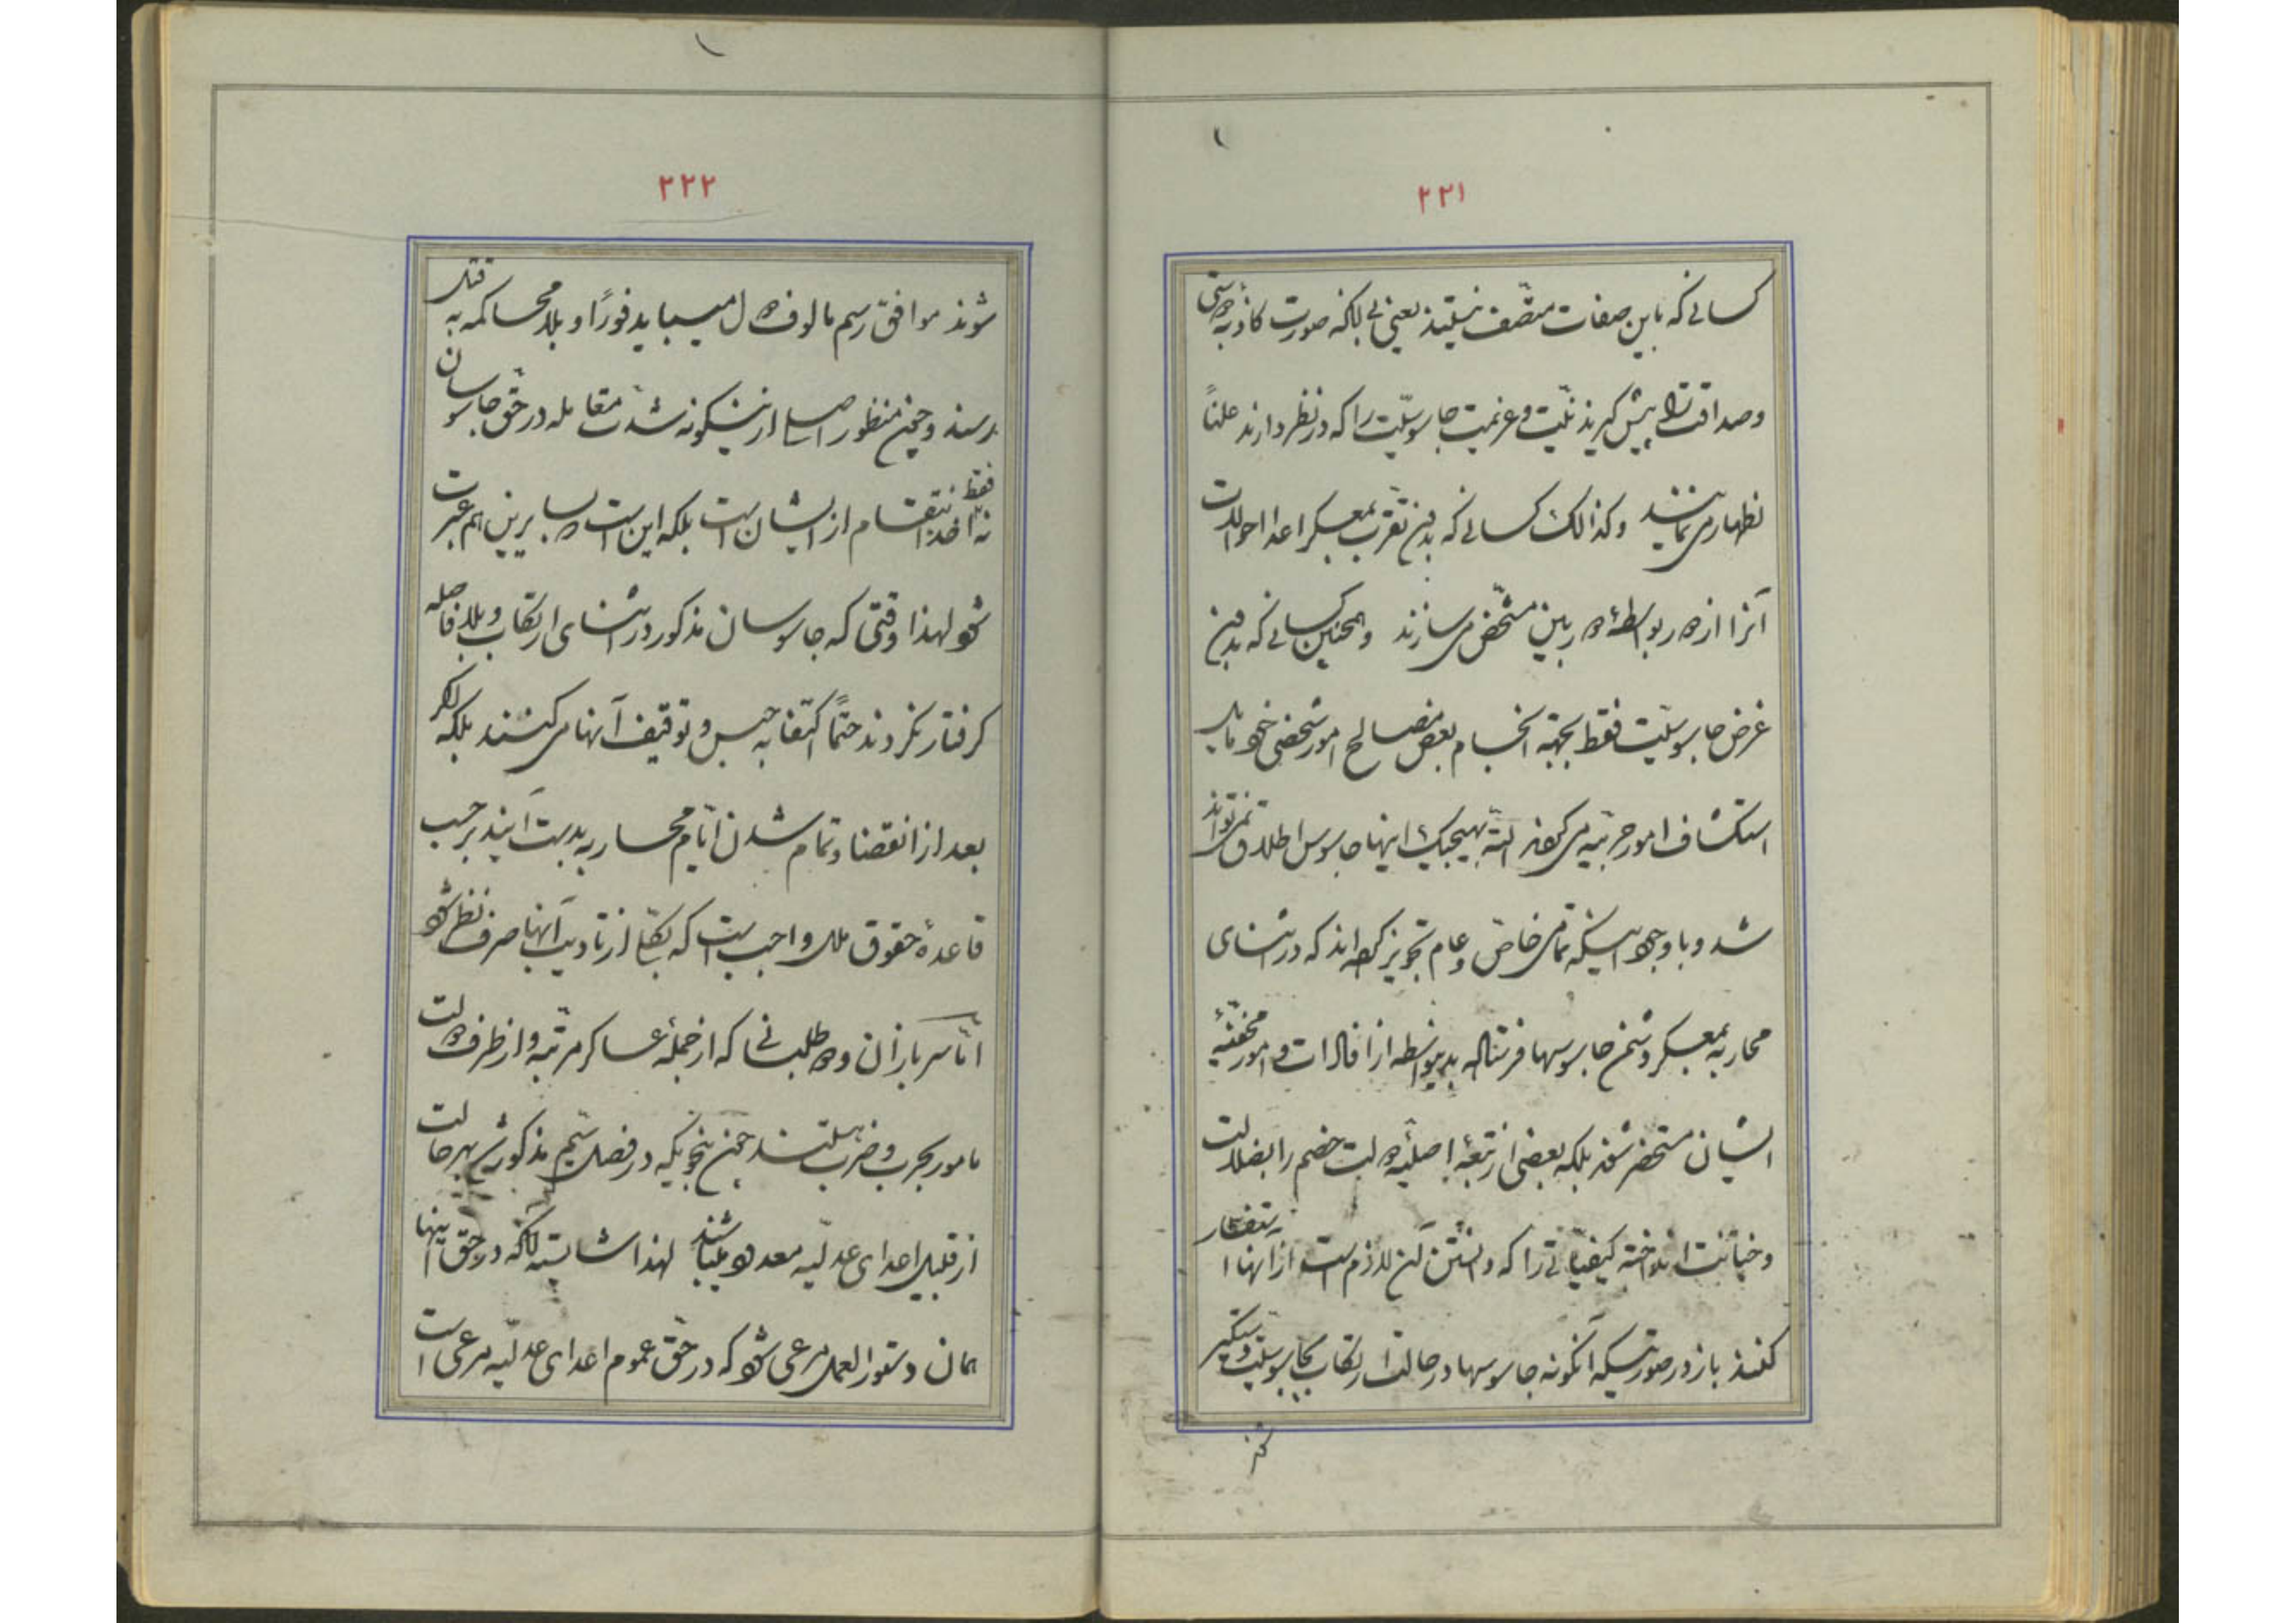 ۲۲۱
کسانی که باین صفات متّصف نیستند یعنی بی آنکه صورت کاذبهٔ دوستی
و صداقت را پیش گیرند نیّت و عزیمت جاسوسیّت را که در نظر دارند علناً
اظهار می نمایند و کذالک کسانی که بدون تقرّب بمعسکر اعدا احوالات
آنرا از دور بواسطهٔ دوربین مشخّص می سازند و همچنین کسانی که بدون
غرض جاسوسیّت فقط بجهة انجام بعض مصالح امور شخصی خود
استکشاف امور حربیّه می کنند البتّه بهیچیک اینها جاسوس اطلاق نمی تواند
شد و با وجود اینکه تمامی خاصّ و عام تجویز کرده اند که در اثنای
محاربه بمعسکر دشمن جاسوسها فرستاده بدینواسطه از افادات و امور مخفیّهٔ
ایشان مستحضر شوند بلکه بعضی از تبعهٔ اصلیّهٔ دولت خصم را بضلالت
و خیانت انداخته کیفیّاتی را که دانستن آن لازم است از آنها استفسار
کنند باز در صورتیکه آنگونه جاسوسها در حالت ارتکاب بجاسوسیّت دستگیر
شوند
۲۲۲
شوند موافق رسم مألوف دول میباید فوراً و بلا محاکمه به قتل
برسند و چون منظور اصلی از اینگونه شدّت معامله در حقّ جاسوسان
نه فقط اخذ انتقام از ایشان است بلکه این است که بسایرین هم عبرت
شود لهذا وقتی که جاسوسان مذکور در اثنای ارتکاب و بلا فاصله
گرفتار نگردند حتماً اکتفا به حبس و توقیف آنها می کنند بلکه اگر
بعد از انقضا و تمام شدن ایّام محاربه بدست آیند بر حسب
قاعدهٔ حقوق ملل واجب است که بکلّی از تأدیب آنها صرف نظر شود
امّا سربازان و داوطلبانی که از جملهٔ عساکر مرتّبه و از طرف دولت
مأمور بحرب و ضرب هستند چون بنحویکه در فصل ششم مذکور شد بهر حالت
از قبیل اعدای عدلیّه معدود میباشند لهذا شایسته آنکه در حقّ اینها
همان دستور العمل مرعی شود که در حقّ عموم اعدای عدلیّه مرعی است